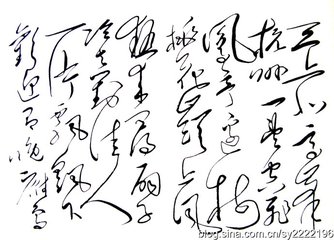 三上北高峰
杭州一望空飞
凤亭边树
桃花岭上风
热来寻扇子
冷去对佳人
一片飘飘下
欢迎有晚鹰
blog.sina.com.cn/sy2222196